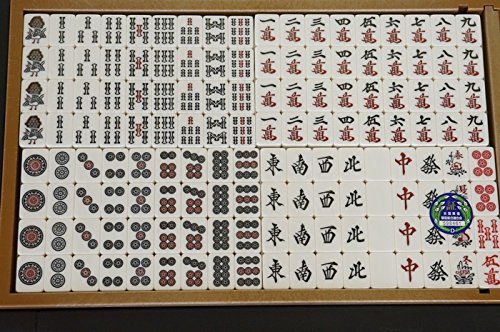 一 二 三 四 伍 六 七 八 九
萬 萬 萬 萬 萬 萬 萬 萬 萬
一 二 三 四 伍 六 七 八 九
萬 萬 萬 萬 萬 萬 萬 萬 萬
一 二 三 四 伍 六 七 八 九
萬 萬 萬 萬 萬 萬 萬 萬 萬
一 二 三 四 伍 六 七 八 九
萬 萬 萬 萬 萬 萬 萬 萬 萬
東 南 西 北 中 發 春
東 南 西 北 中 發
東 南 西 北 中 發
東 南 西 北 中 發 冬 伍
萬